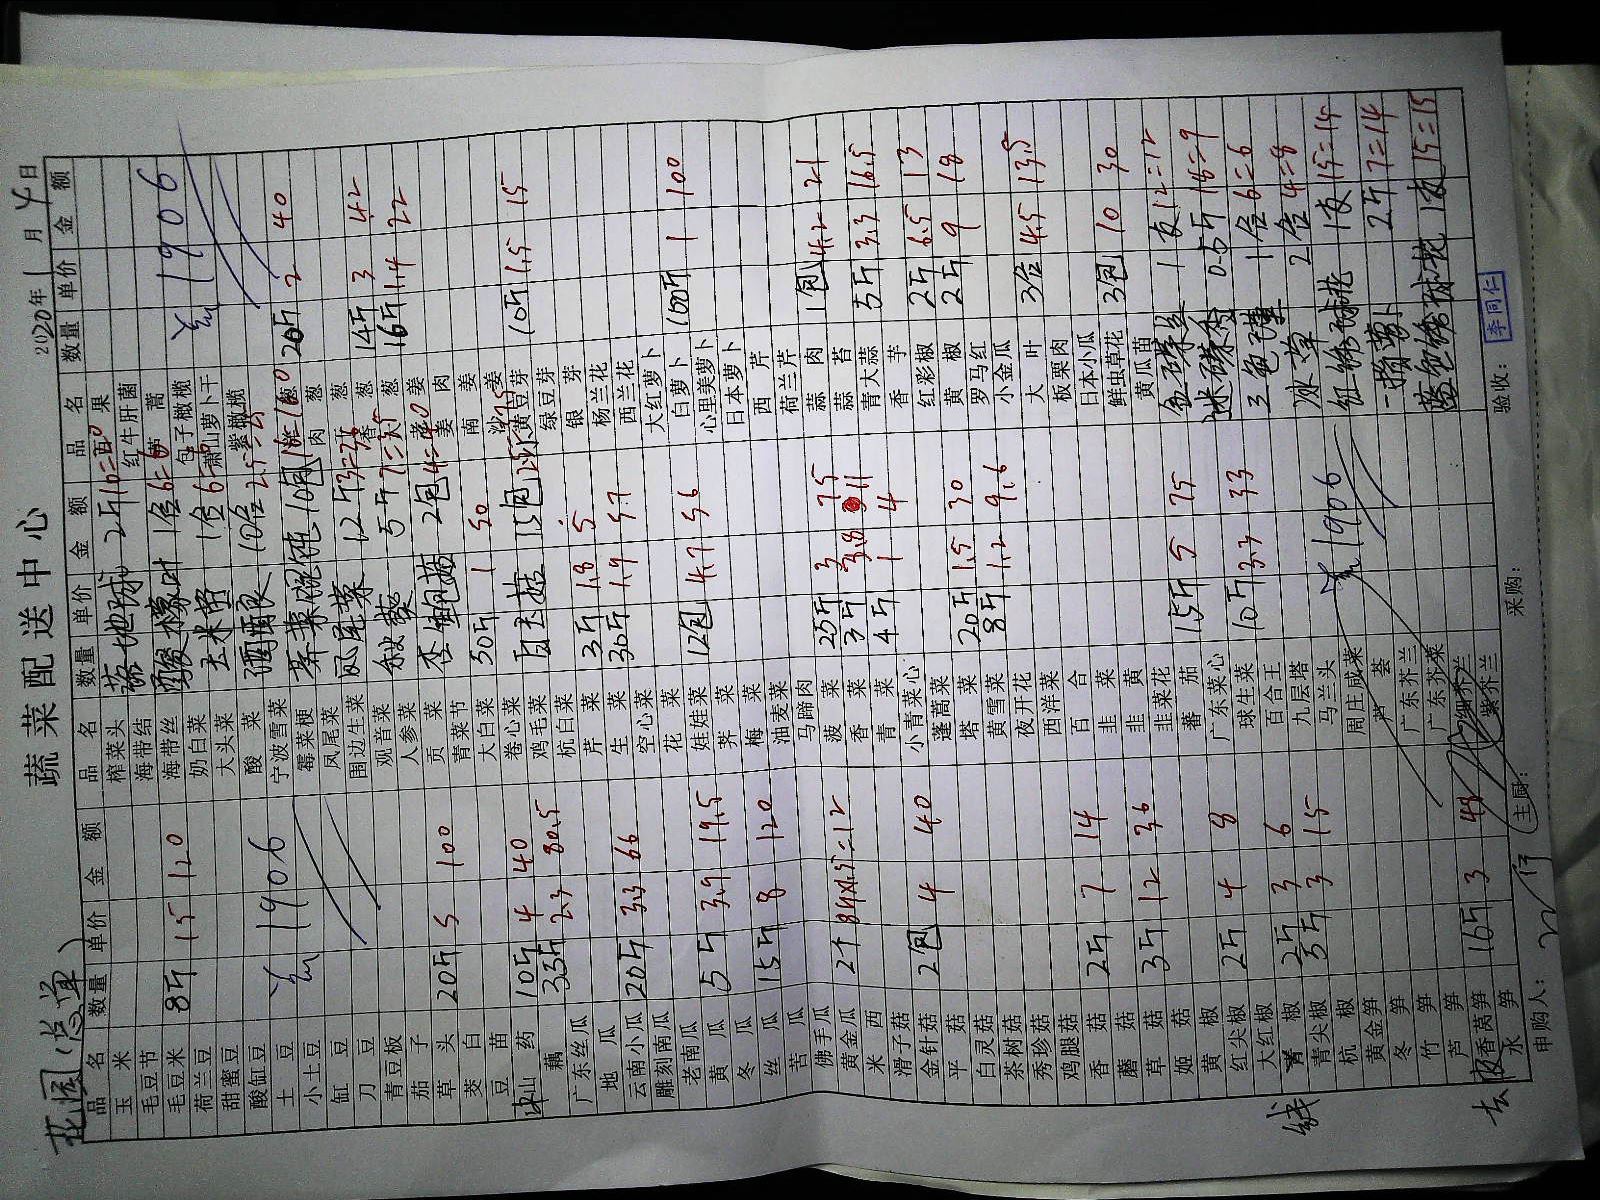 蔬菜配送中心
花园(总单) 2020年1月4日
品名 数量 单价 金额 品名 数量 单价 金额 品名 数量 单价 金额
玉米
毛豆节
毛豆米 8斤 15 120
荷兰豆
甜蜜豆
酸缸豆
土豆 1906
小土豆
缸豆
刀豆
青豆板
茄子
草头 20斤 5 100
茭白
豆苗
山药 10斤 4 40
藕 35斤 2.3 80.5
广东丝瓜
地瓜
云南小瓜 20斤 3.3 66
雕刻南瓜
老南瓜
黄瓜 5斤 3.9 19.5
冬瓜
丝瓜 15斤 8 120
苦瓜
佛手瓜
黄金瓜 2个
米西
滑子菇
金针菇 2包 4 40
平菇
白灵菇
茶树菇
秀珍菇
鸡腿菇
香菇 2斤 7 14
蘑菇
草菇 3斤 12 36
姬菇
黄椒
红尖椒 2斤 4 8
大红椒
青椒 2斤 3 6
青尖椒 5斤 3 15
杭椒
黄金笋
冬笋
竹笋
芦笋
香莴笋 16斤 3 48
水笋
榨菜头 落地球 2斤10=20
海带结
海带丝 1包6=6
奶白菜 玉米楂 1包6=6
大头菜
酸菜 10包2.5=25
宁波雪菜
霉菜梗 荠菜馄饨 10包
凤尾菜
围边生菜 凤尾菜 12斤3=36
观音菜
人参菜 秋葵 5斤7=35
贡菜
青菜节 杏鲍菇 2包4=
大白菜 50斤 1 50
卷心菜
鸡毛菜 白玉菇 15包
杭白菜
芹菜 3斤 1.8 5.
生菜 30斤 1.9 57
空心菜
花菜
娃娃菜 12包 4.7 56
荠菜
梅菜
油麦菜
马蹄肉
菠菜 25斤 3 75
香菜 3斤 3.8 11
青菜 4斤 1 4
小青菜心
蓬蒿菜
塔菜 20斤 1.5 30
黄雪菜 8斤 1.2 9.6
夜开花
西洋菜
百合
韭菜
韭黄
韭菜花
蕃茄 15斤 5 75
广东菜心
球生菜 10斤 3.3 33
百合王
九层塔
马兰头 1906
周庄咸菜
芦荟
广东芥兰
广东芥菜
细芥兰
紫芥兰
百果
红牛肝菌
蒿 1906
包子橄榄
萧山萝卜干
紫橄榄
葱 20斤 2 40
肉葱
葱
香葱 14斤 3 42
葱 16斤 1.4 22
老姜
姜肉
南姜
沙姜
黄豆芽 10斤 1.5 15
绿豆芽
银芽
杨兰花
西兰花
大红萝卜
白萝卜 100斤 1 100
心里美萝卜
日本萝卜
西芹
荷兰芹
蒜肉 1包 4.2 21
蒜苔
青大蒜 5斤 3.3 16.5
香芋
红彩椒 2斤 6.5 13
黄椒 2斤 9 18
罗马红
小金瓜
大叶 3包 4.5 13.5
板栗肉
日本小瓜
鲜虫草花 3包 10 30
黄瓜苗
1支12=12
迷迭香 0.5斤 18=9
三色堇 1盒6=6
冰草 2盒4=8
红绣球花 1支15=15
一指萝卜 2斤7=14
蓝色绣球花 1支15=15
申购人: 主厨: 采购: 验收: 李同仁